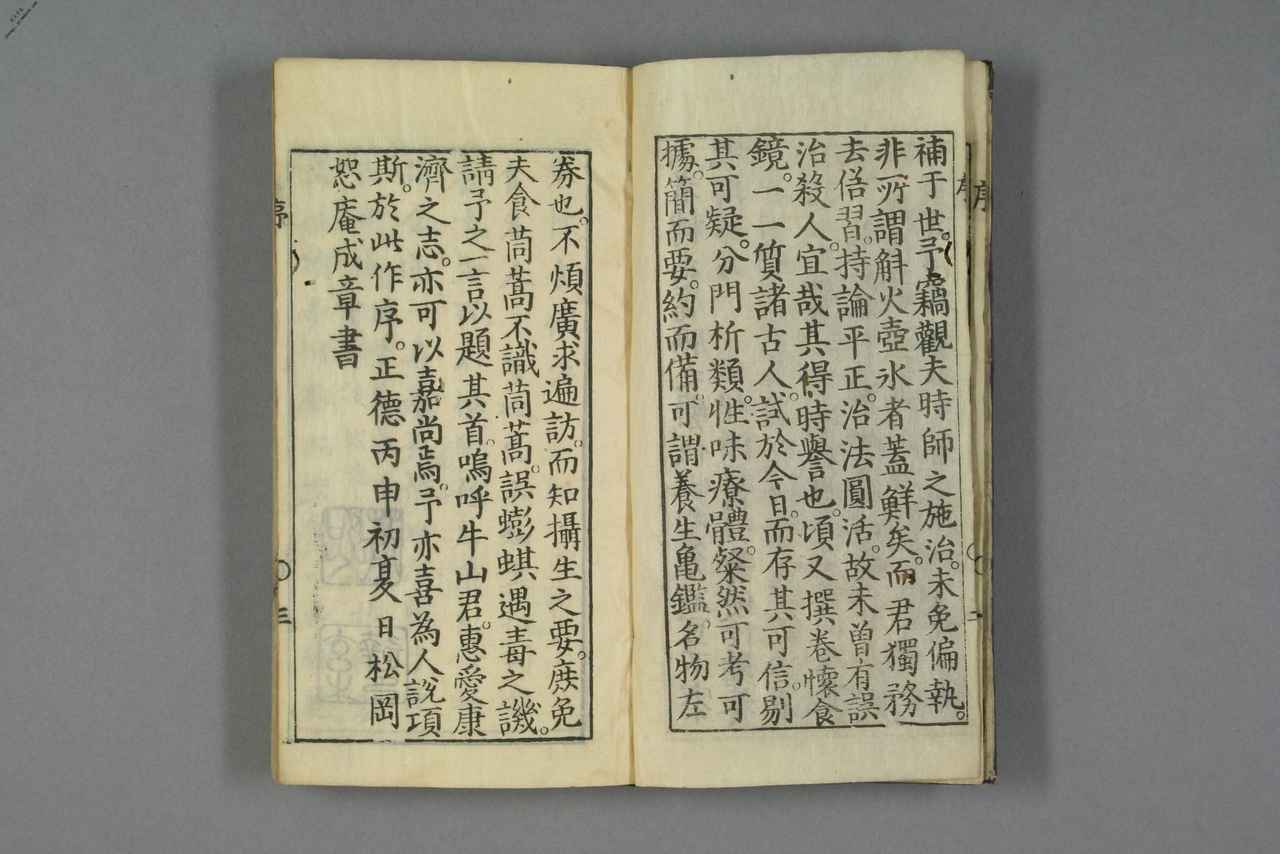 補于世。予竊觀夫時師之施治。未免偏執。
非所謂斛火壺氷者蓋鮮矣。而君獨務
去偣習。持論平正。治法圓活。故未曽有誤
治殺人。宜哉其得時譽也。頃又撰卷懷食
鏡。一一質諸古人。試於今日。而存其可信。剔
其可疑。分門析類。性味療體。粲然可考可
據。簡而要。約而備。可謂養生亀鑑。名物左
券也。不煩廣求遍訪。而知攝生之要。庻免
夫食茼蒿不識茼蒿。誤蟛蜞遇毒之譏。
請予之一言以題其首。嗚呼牛山君。惠愛康
濟之志。亦可以嘉尚焉。予亦喜為人說項
斯。於此作序。正德丙申初夏日松岡
恕庵成章書
序
三
序
二